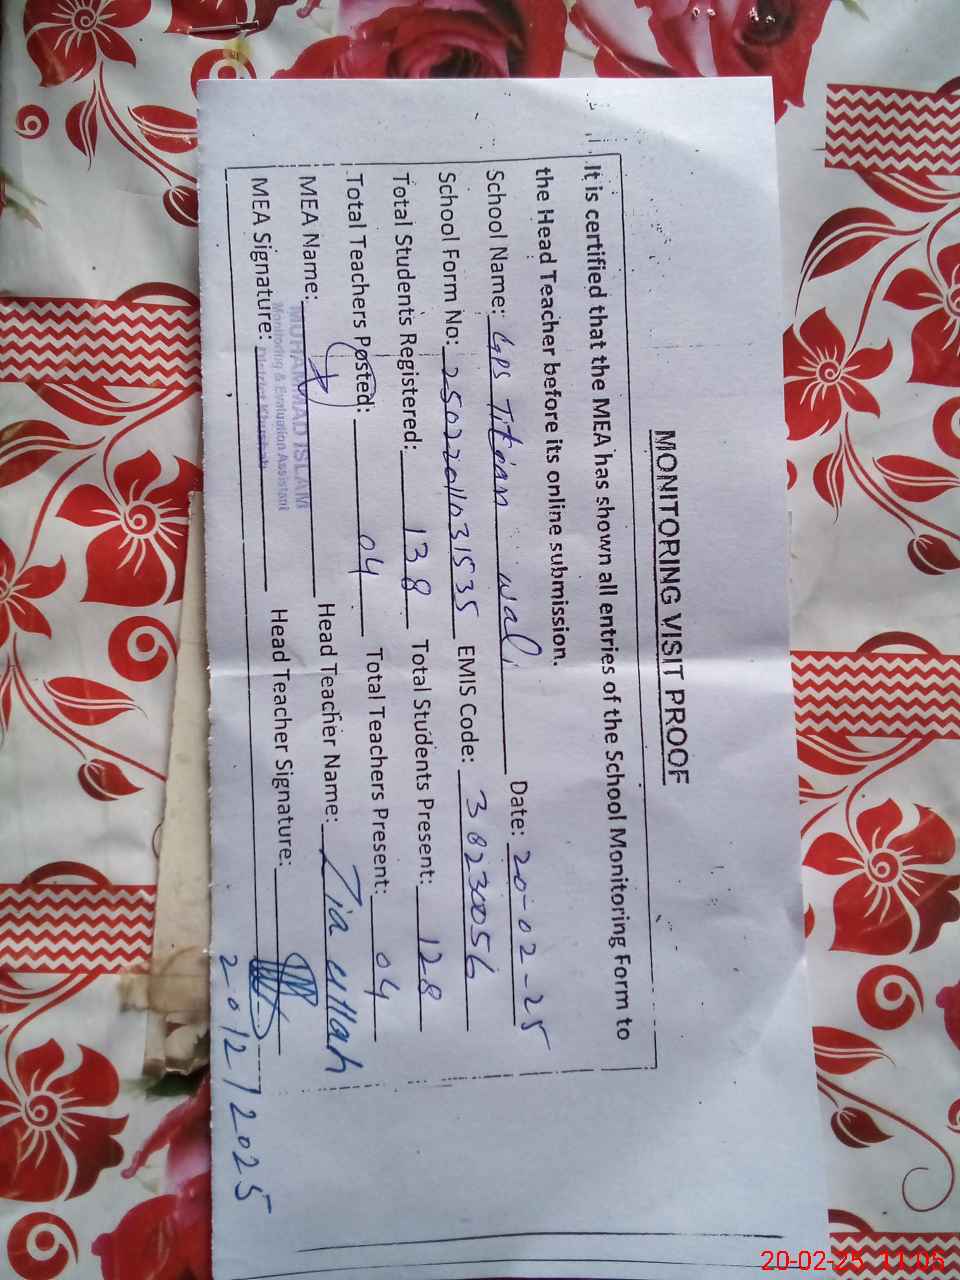 MONITORING VISIT PROOF
It is certified that the MEA has shown all entries of the School Monitoring Form to
the Head Teacher before its online submission.
School Name: GPS Titrian wali Date: 20-02-25
School Form No: 25022011031535 EMIS Code: 38230056
Total Students Registered: 138 Total Students Present: 128
Total Teachers Posted: 04 Total Teachers Present: 04
MEA Name: Head Teacher Name: Zia ullah
MUHAMMAD ISLAM
Monitoring & Evaluation Assistant
District Khushab
MEA Signature: Head Teacher Signature:
20/2/2025
20-02-25 11:05